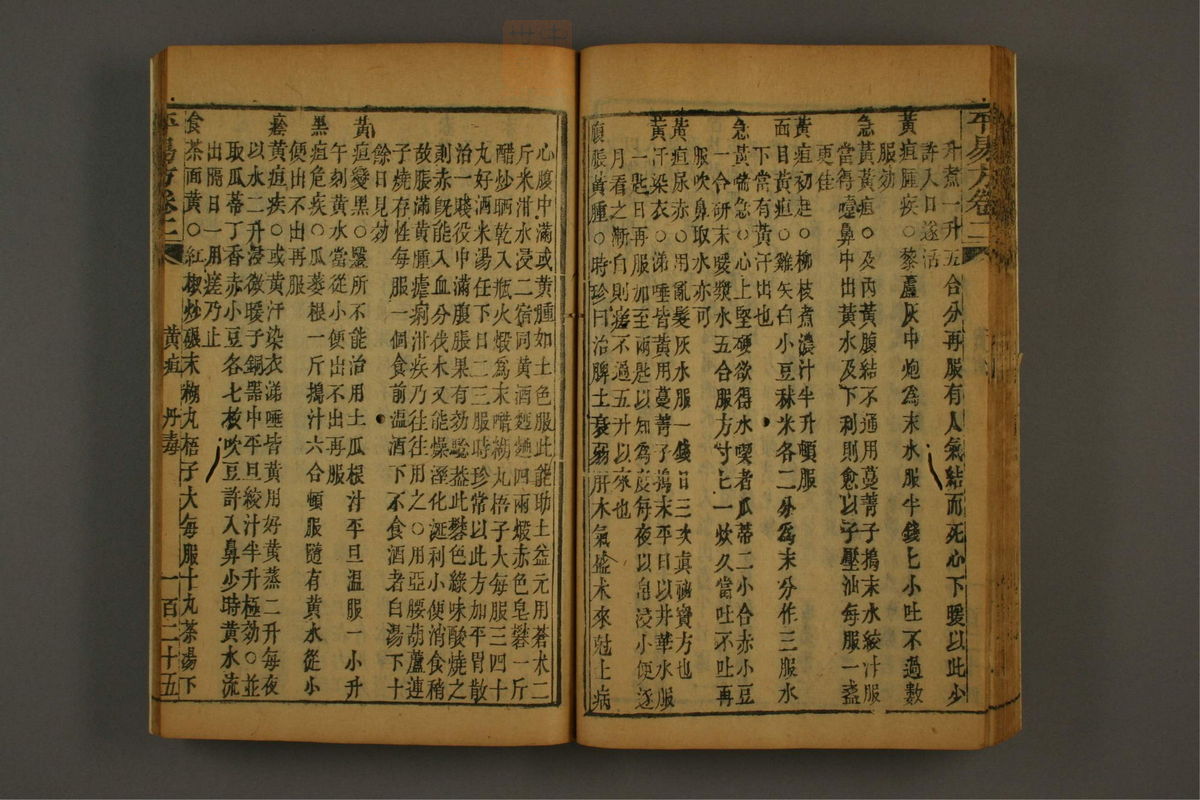 平易方卷二
升煮一升五合分再服有人氣結而死心下暖以此少
許入口遂活
黃疸腫疾○藜蘆灰中炮為末水服半錢匕小吐不過數
服効
急黃黃疸○及內黃腹結不通用蔓菁子搗末水絞汁服
當得嚏鼻中出黃水及下利則愈以子壓油每服一盞
更佳
黃疸初起○柳枝煮濃汁半升頓服
面目黃疸○雞矢白小豆秫米各二分為末分作三服水
下當有黃汗出也
急黃喘急○心上堅硬欲得水喫者瓜蒂二小合赤小豆
一合研末暖漿水五合服方寸匕一炊久當吐不吐再
服吹鼻取水亦可
黃疸尿赤○用亂髮灰水服一錢日三次真祕寶方也
黃汗染衣○涕唾皆黃用蔓菁子搗末平旦以井華水服
一匙日再服加至兩匙以知為度每夜以帛浸小便逐
月看之漸白則瘥不過五升以來也
腹脹黃腫○時珍曰治脾土衰弱肝木氣盛木來尅土病
心腹中滿或黃腫如土色服此能助土益元用蒼朮二
斤米泔水浸二宿同黃酒麪麯四兩煅赤色皂礬一斤
醋炒晒乾入瓶火煅為末醋糊丸梧子大每服三四十
丸好酒米湯任下日二三服時珍常以此方加平胃散
治一賤役中滿腹脹果有効驗蓋此礬色綠味酸燒之
則赤旣能入血分伐木又能燥溼化涎利小便消食稍
故脹滿黃腫瘧痢疳疾乃往往用之○用亞腰葫蘆連
子燒存性每服一個食前溫酒下不食酒者白湯下十
餘日見効
黃疸變黑○醫所不能治用土瓜根汁平旦溫服一小升
午刻黃水當從小便出不出再服
黑疸危疾○瓜蔞根一斤搗汁六合頓服隨有黃水從小
便出不出再服
療黃疸疾○或黃汗染衣涕唾皆黃用好黃蒸二升每夜
以水二升浸微暖于銅器中平旦絞汁半升極効○並
取瓜蒂丁香赤小豆各七枚吹豆許入鼻少時黃水流
出隔日一用瘥乃止
食茶面黃○紅椒炒碾末糊丸梧子大每服十丸茶湯下
平易方卷二 黃疸 丹毒 一百二十五